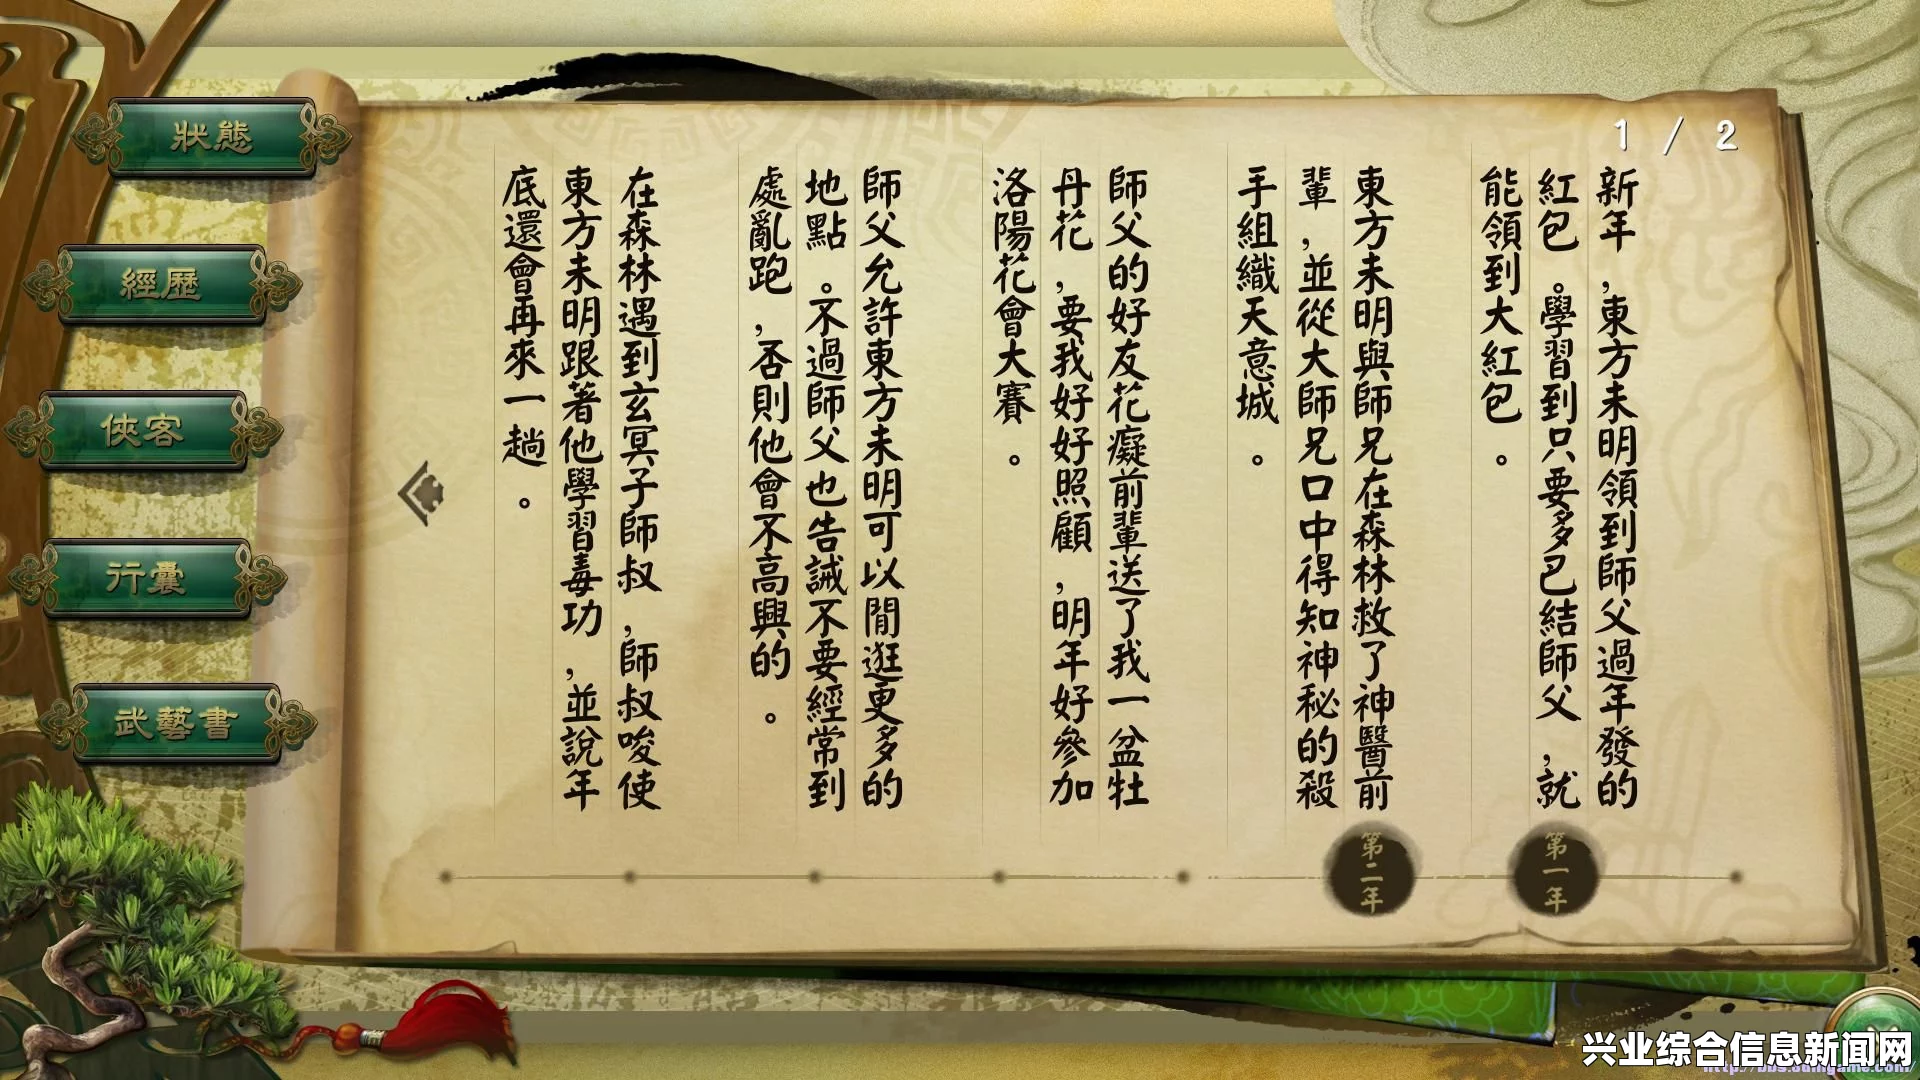 狀態
經歷
俠客
行囊
武藝書
1 / 2
新年，東方未明領到師父過年發的
紅包。學習到只要多巴結師父，就
能領到大紅包。
東方未明與師兄在森林救了神醫前
輩，並從大師兄口中得知神秘的殺
手組織天意城。
師父的好友花癡前輩送了我一盆牡
丹花，要我好好照顧，明年好參加
洛陽花會大賽。
師父允許東方未明可以閒逛更多的
地點。不過師父也告誡不要經常到
處亂跑，否則他會不高興的。
在森林遇到玄冥子師叔，師叔唆使
東方未明跟著他學習毒功，並說年
底還會再來一趟。
第一年
第二年
兴业综合信息新闻网